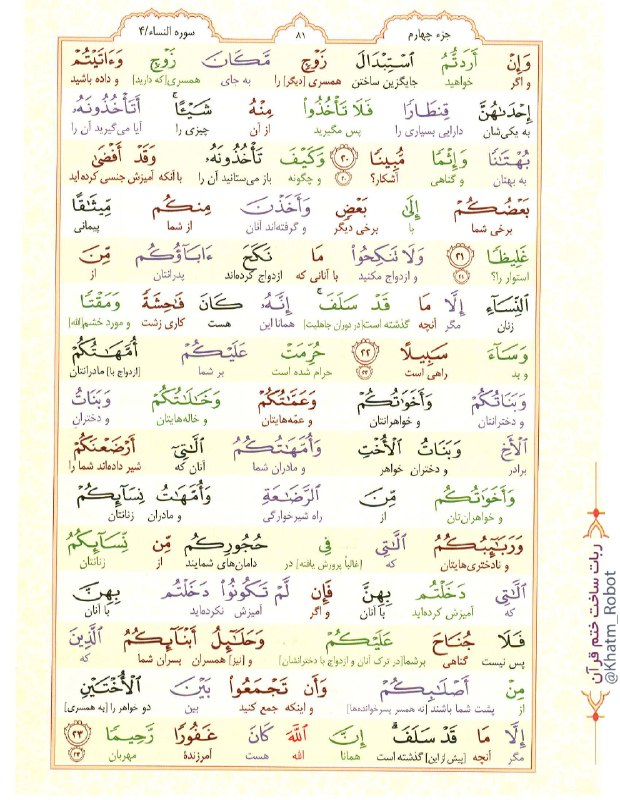 سوره النساء/۴
۸۱
جزء چهارم
وَإِنْ أَرَدتُّمُ ٱسْتِبْدَالَ زَوْجٍ مَّكَانَ زَوْجٍ وَءَاتَيْتُمْ
و اگر خواهید جایگزین ساختن همسری [دیگر] را به جای همسری [که دارید] و داده باشید
إِحْدَىٰهُنَّ قِنطَارًا فَلَا تَأْخُذُوا۟ مِنْهُ شَيْـًٔا ۚ أَتَأْخُذُونَهُۥ
به یکی‌شان دارایی بسیاری را پس مگیرید از آن چیزی را آیا می‌گیرید آن را
بُهْتَـٰنًا وَإِثْمًا مُّبِينًا ۲۰ وَكَيْفَ تَأْخُذُونَهُۥ وَقَدْ أَفْضَىٰ
به بهتان و گناهی آشکار؟ ۲۰ و چگونه باز می‌ستانید آن را با آنکه آمیزش جنسی کرده‌اید
بَعْضُكُمْ إِلَىٰ بَعْضٍ وَأَخَذْنَ مِنكُم مِّيثَـٰقًا
برخی شما با برخی دیگر و گرفته‌اند آنان از شما پیمانی
غَلِيظًا ۲۱ وَلَا تَنكِحُوا۟ مَا نَكَحَ ءَابَآؤُكُم مِّنَ
استوار را؟ ۲۱ و ازدواج مکنید با آنانی که ازدواج کرده‌اند پدرانتان از
ٱلنِّسَآءِ إِلَّا مَا قَدْ سَلَفَ ۚ إِنَّهُۥ كَانَ فَـٰحِشَةً وَمَقْتًا
زنان مگر آنچه گذشته است [در دوران جاهلیت] همانا این هست کاری زشت و مورد خشم [الله]
وَسَآءَ سَبِيلًا ۲۲ حُرِّمَتْ عَلَيْكُمْ أُمَّهَـٰتُكُمْ
و بد راهی است ۲۲ حرام شده است بر شما [ازدواج با] مادرانتان
وَبَنَاتُكُمْ وَأَخَوَٰتُكُمْ وَعَمَّـٰتُكُمْ وَخَـٰلَـٰتُكُمْ وَبَنَاتُ
و دخترانتان و خواهرانتان و عمّه‌هایتان و خاله‌هایتان و دختران
ٱلْأَخِ وَبَنَاتُ ٱلْأُخْتِ وَأُمَّهَـٰتُكُمُ ٱلَّـٰتِىٓ أَرْضَعْنَكُمْ
برادر و دختران خواهر و مادران شما آنان که شیر داده‌اند شما را
وَأَخَوَٰتُكُم مِّنَ ٱلرَّضَـٰعَةِ وَأُمَّهَـٰتُ نِسَآئِكُمْ
و خواهران‌تان از راه شیرخوارگی و مادران زنانتان
وَرَبَـٰٓئِبُكُمُ ٱلَّـٰتِى فِى حُجُورِكُم مِّن نِّسَآئِكُمُ
و نادختری‌هایتان که [غالباً پرورش یافته] در دامان‌های شمایند از زنانتان
ٱلَّـٰتِى دَخَلْتُم بِهِنَّ فَإِن لَّمْ تَكُونُوا۟ دَخَلْتُم بِهِنَّ
که آمیزش کرده‌اید با آنان و اگر آمیزش نکرده‌اید با آنان
فَلَا جُنَاحَ عَلَيْكُمْ وَحَلَـٰٓئِلُ أَبْنَآئِكُمُ ٱلَّذِينَ
پس نیست گناهی برشما [در ترک آنان و ازدواج با دخترانشان] و [نیز] همسران پسران شما که
مِنْ أَصْلَـٰبِكُمْ وَأَن تَجْمَعُوا۟ بَيْنَ ٱلْأُخْتَيْنِ
از پشت شما باشند [نه همسر پسرخوانده‌ها] و اینکه جمع کنید بین دو خواهر را [به همسری]
إِلَّا مَا قَدْ سَلَفَ ۗ إِنَّ ٱللَّهَ كَانَ غَفُورًا رَّحِيمًا ۲۳
مگر آنچه [پیش از این] گذشته است همانا الله هست آمرزندهٔ مهربان ۲۳
ربات ساخت ختم قرآن
@Khatm_Robot